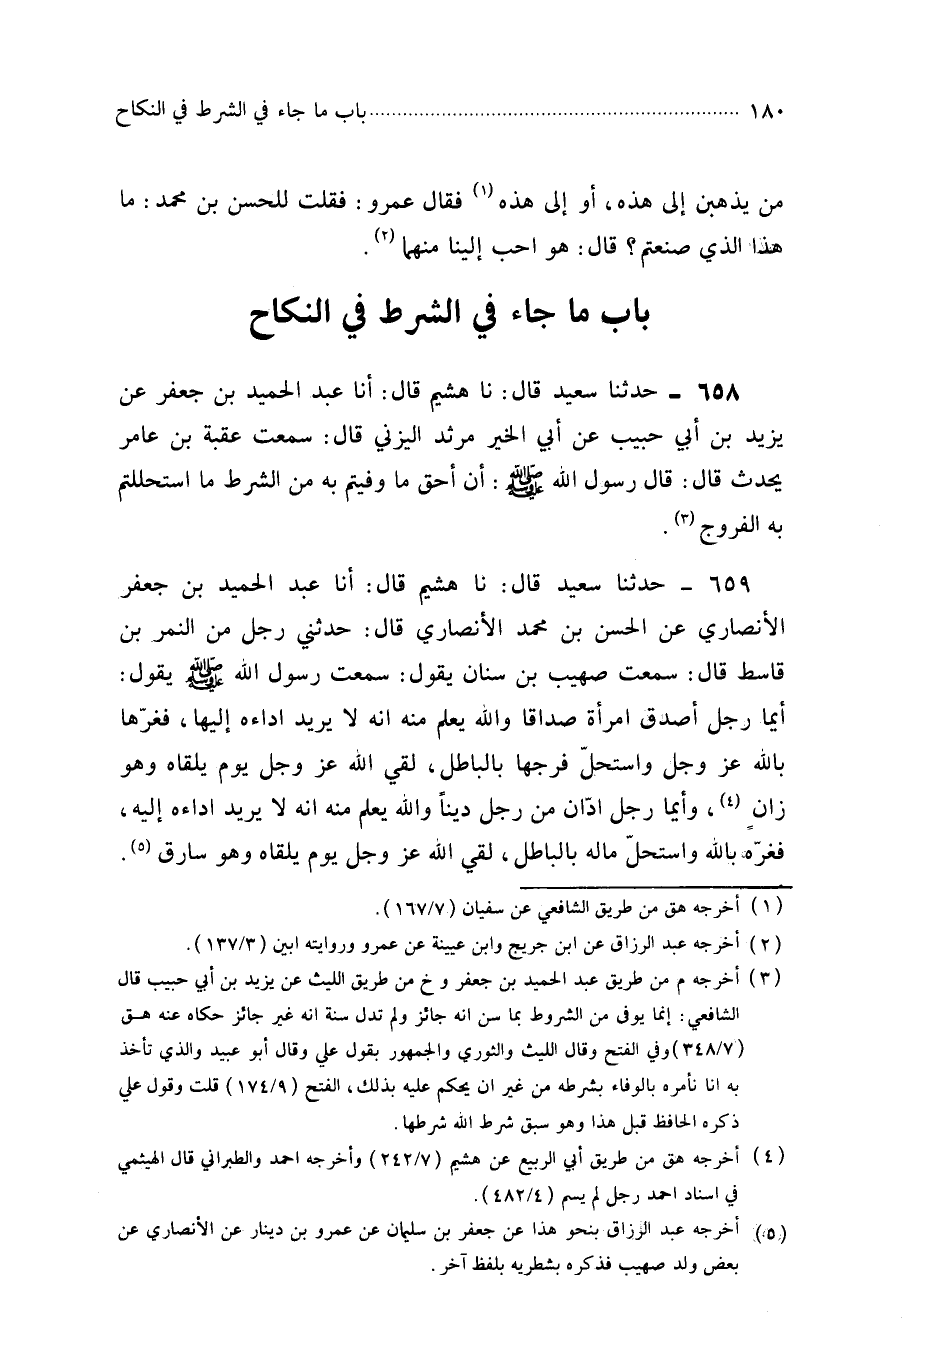 ١٨٠ ........ باب ما جاء في الشرط في النكاح
من يذهبن إلى هذه، أو إلى هذه (١) فقال عمرو: فقلت للحسن بن محمد: ما
هذا الذي صنعتم؟ قال: هو احب إلينا منهما (٢).
باب ما جاء في الشرط في النكاح
٦٥٨ ـ حدثنا سعيد قال: نا هشيم قال: أنا عبد الحميد بن جعفر عن
يزيد بن أبي حبيب عن أبي الخير مرثد اليزني قال: سمعت عقبة بن عامر
يحدث قال: قال رسول الله ﷺ : أن أحق ما وفيتم به من الشرط ما استحللتم
به الفروج (٣).
٦٥٩ ـ حدثنا سعيد قال: نا هشيم قال: أنا عبد الحميد بن جعفر
الأنصاري عن الحسن بن محمد الأنصاري قال: حدثني رجل من النمر بن
قاسط قال: سمعت صهيب بن سنان يقول: سمعت رسول الله ﷺ يقول:
أيما رجل أصدق امرأة صداقا والله يعلم منه انه لا يريد اداءه إليها، فغرّها
بالله عز وجل واستحلّ فرجها بالباطل، لقي الله عز وجل يوم يلقاه وهو
زانٍ (٤)، وأيما رجل ادّان من رجل ديناً والله يعلم منه انه لا يريد اداءه إليه،
فغرّه بالله واستحلّ ماله بالباطل، لقي الله عز وجل يوم يلقاه وهو سارق (٥).
(١) أخرجه هق من طريق الشافعي عن سفيان (١٦٧/٧).
(٢) أخرجه عبد الرزاق عن ابن جريج وابن عيينة عن عمرو وروايته ابين (١٣٧/٣).
(٣) أخرجه م من طريق عبد الحميد بن جعفر و خ من طريق الليث عن يزيد بن أبي حبيب قال
الشافعي: إنما يوفى من الشروط بما سن انه جائز ولم تدل سنة انه غير جائز حكاه عنه هـق
(٣٤٨/٧)وفي الفتح وقال الليث والثوري والجمهور بقول علي وقال أبو عبيد والذي تأخذ
به انا نأمره بالوفاء بشرطه من غير ان يحكم عليه بذلك، الفتح (١٧٤/٩) قلت وقول علي
ذكره الحافظ قبل هذا وهو سبق شرط الله شرطها.
(٤) أخرجه هق من طريق أبي الربيع عن هشيم (٢٤٢/٧) وأخرجه احمد والطبراني قال الهيثمي
في اسناد احمد رجل لم يسم (٤٨٢/٤).
(٥) أخرجه عبد الرزاق بنحو هذا عن جعفر بن سليمان عن عمرو بن دينار عن الأنصاري عن
بعض ولد صهيب فذكره بشطريه بلفظ آخر.